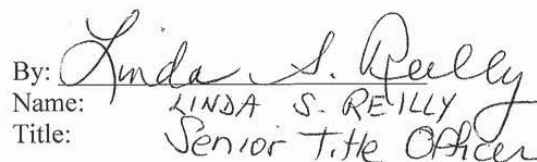 By: Linda S. Reilly
Name: LINDA S. REILLY
Title: Senior Title Officer